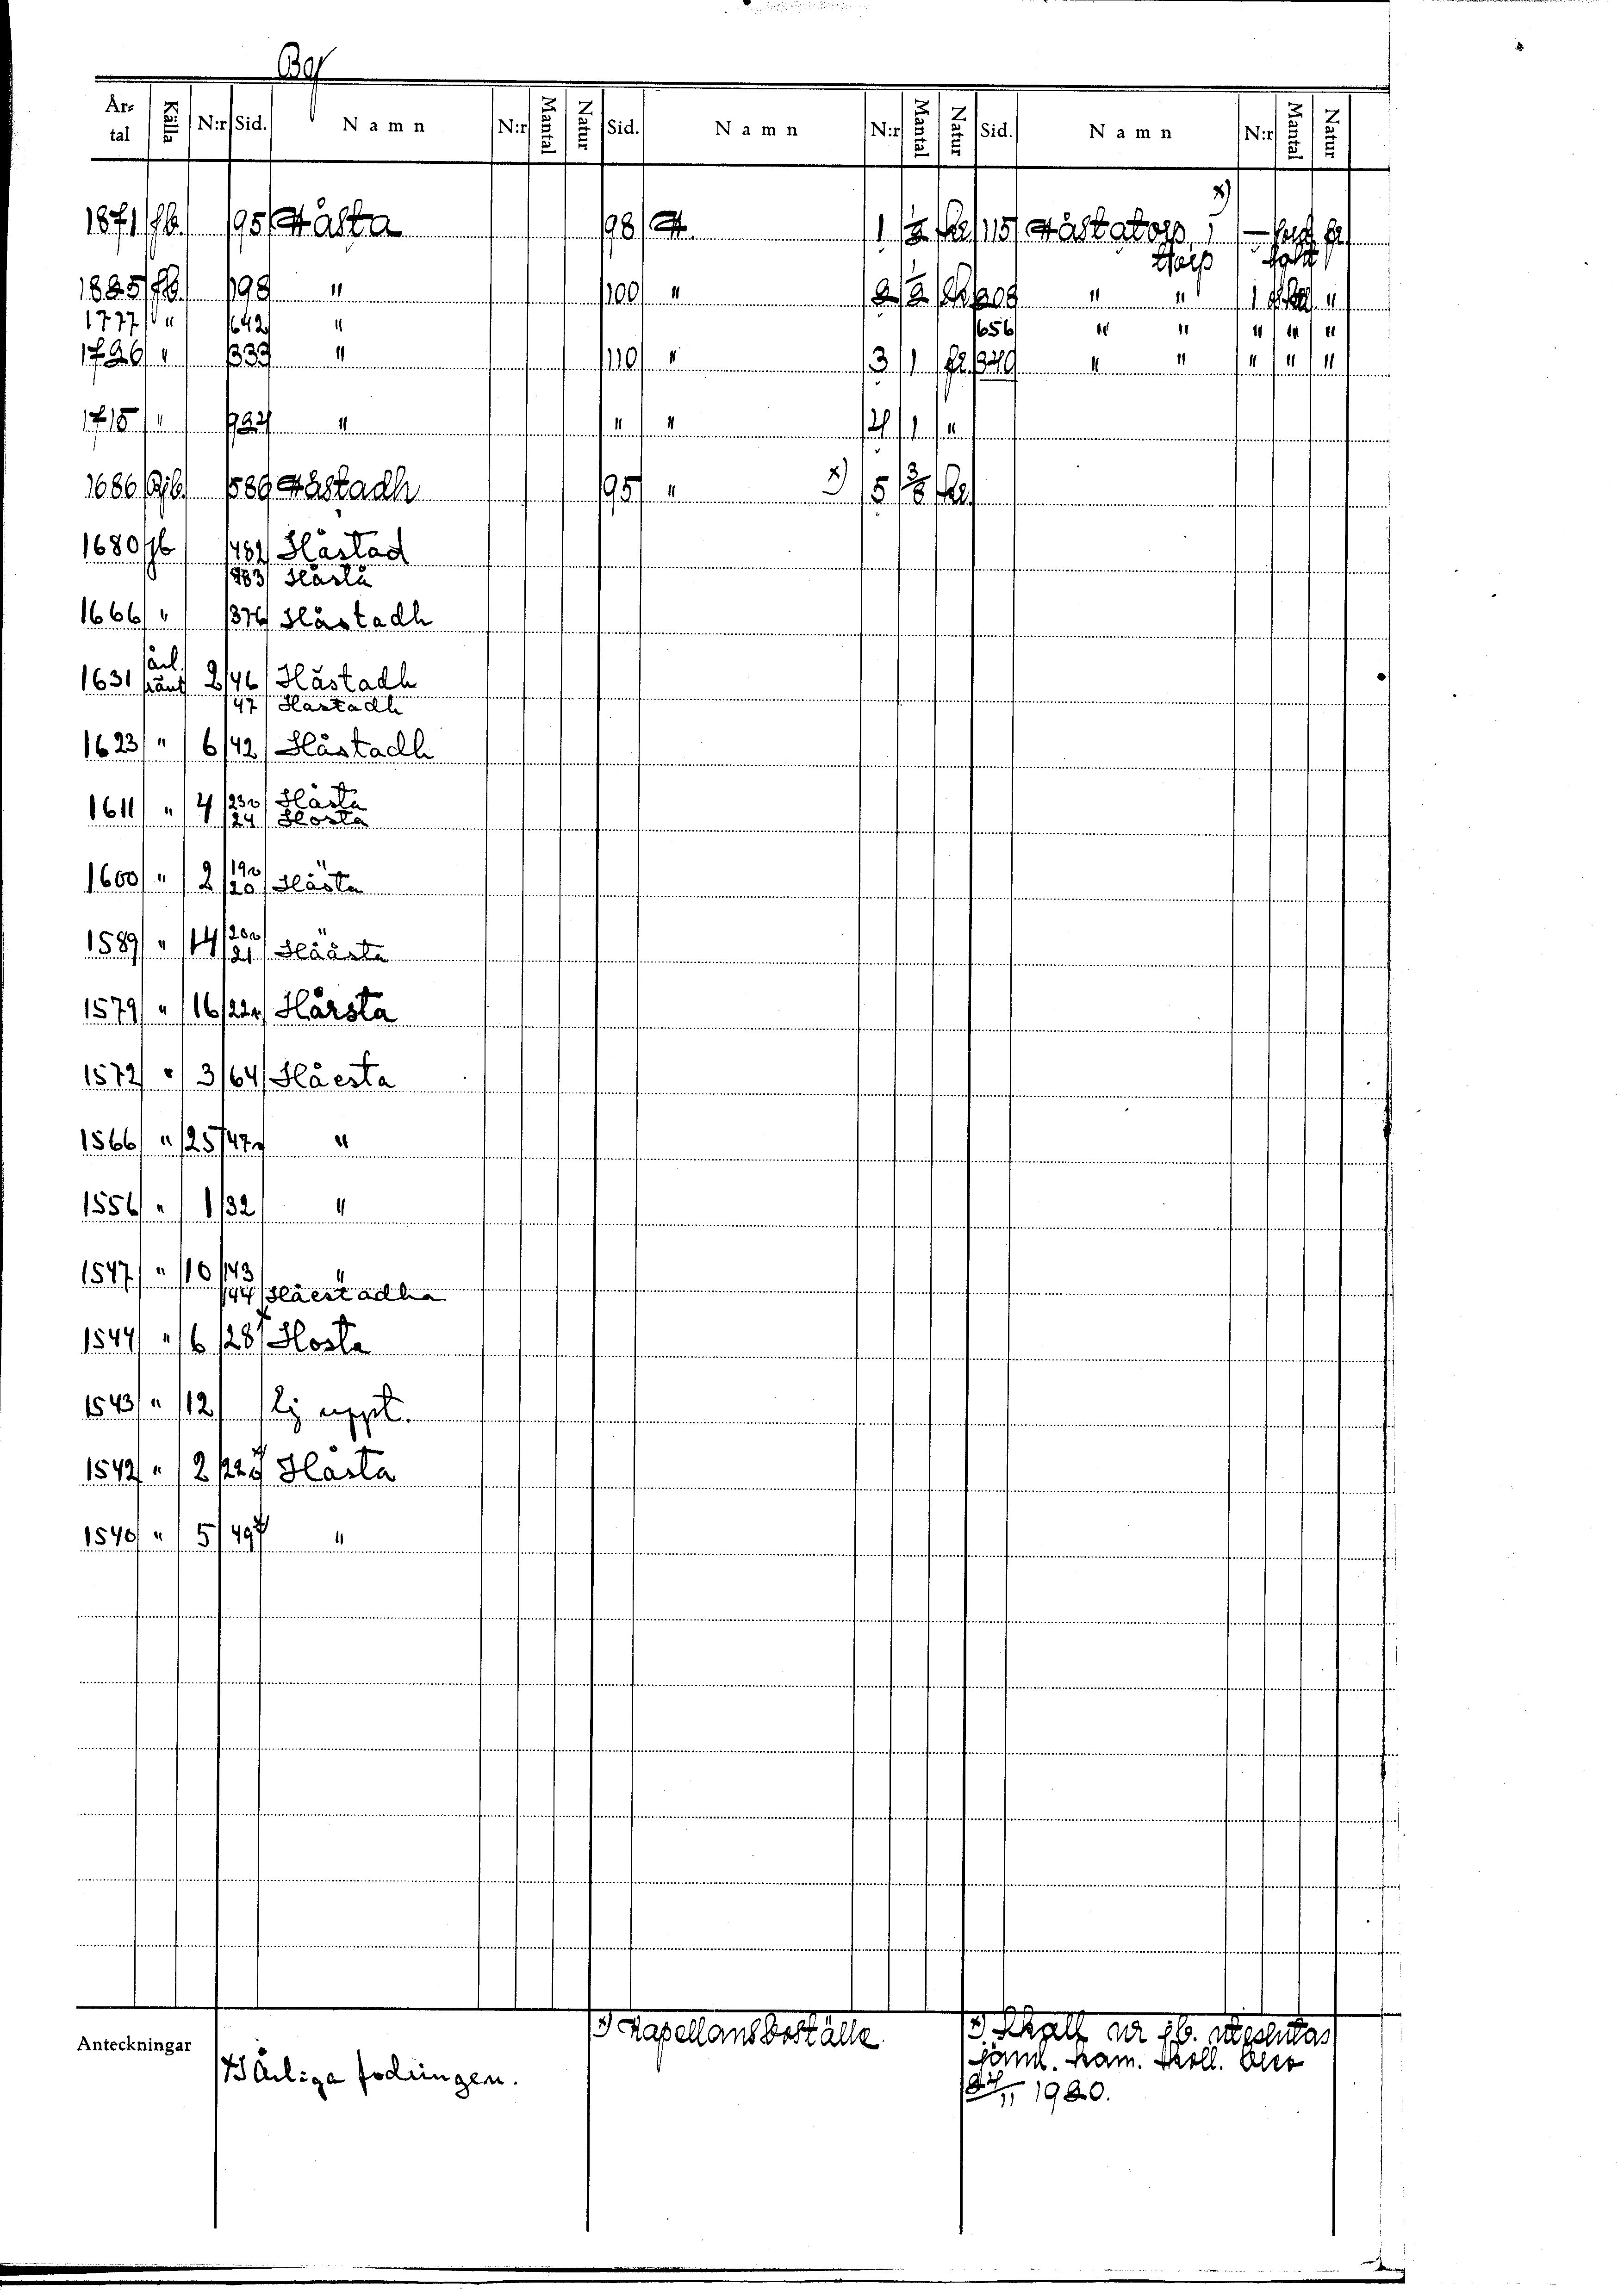 By
Årtal Källa N:r Sid. Namn N:r Mantal Natur Sid. Namn N:r Mantal Natur Sid. Namn N:r Mantal Natur
1871 jb. 95 Håsta 98 H. 1 1/2 kr 115 Håstatorp, x)
torp
1825 jb. 198 " 100 " 2 1/2 208 " " 1 "
1777 " 642 " 656 " " " " "
1726 " 333 " 110 " 3 1 fr. 340 " " " " "
1715 " 924 " " " 4 1 "
1686 Rjb. 586 Håstadh 95 " x) 5 3/8 kr.
1680 jb 482 Håstad
483 Håsta
1666 " 376 Håstadh
1631 årl. ränt 2 46 Håstadh
47 Hastadh
1623 " 6 42 Håstadh
1611 " 4 23v Håsta
24 Hosta
1600 " 2 19v "
20 Håsta
1589 " 14 20v "
21 Hååsta
1579 " 16 22v Hårsta
1572 " 3 64 Håesta
1566 " 25 47v "
1556 " 1 32 "
1547 " 10 143 "
144 Håestadha
1544 " 6 28 x Hosta
1543 " 12 Ej uppt.
1542 " 2 22v x) Håsta
1540 " 5 49 x) "
Anteckningar
x) Årliga fodringen.
x) Kapellansboställe.
x) Skall ur jb. uteslutas
jäml. kam. koll. brev
24/11 1920.